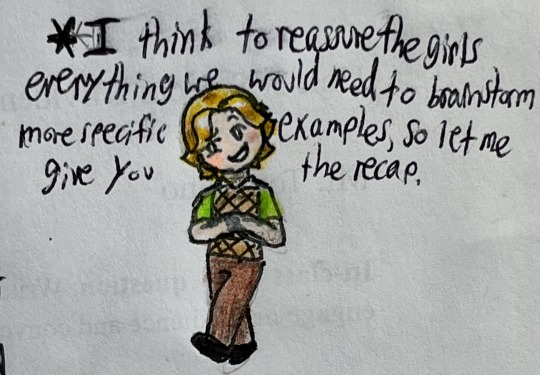 *I think to reassure the girls
everything we would need to brainstorm
more specific examples, so let me
give you the recap.